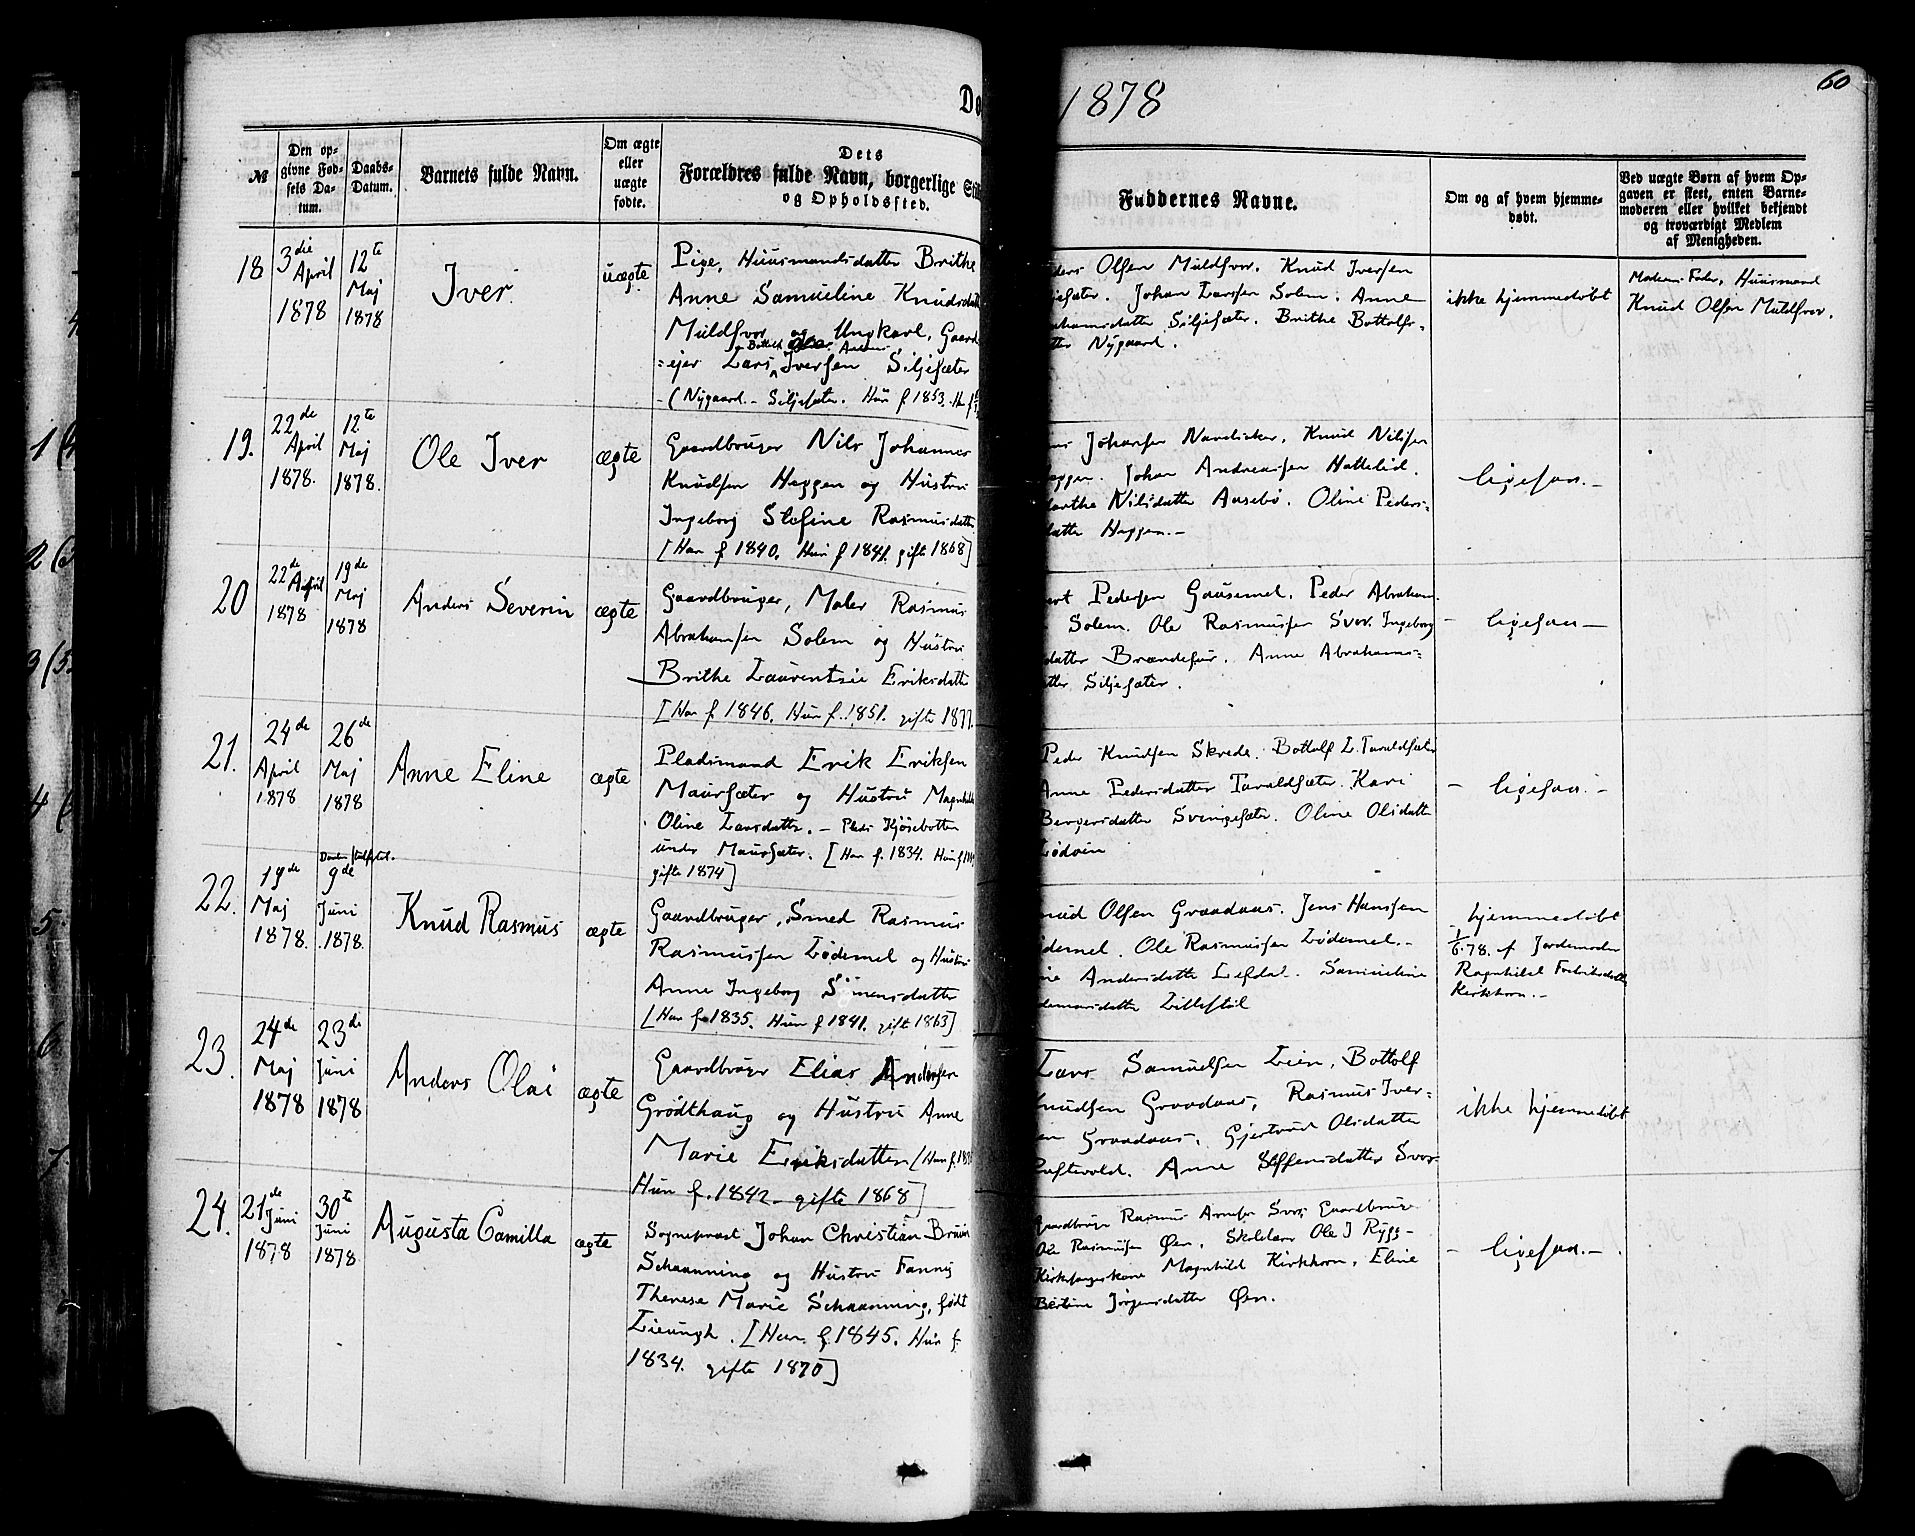 60
Dø
1878
№
Den opgivne Fødsels Datum.
Daabs-Datum.
Barnets fulde Navn.
Om ægte eller uægte fødte.
Dets
Forældres fulde Navn, borgerlige
og Opholdssted.
Fadderne Navne.
Om og af hvem hjemmedøbt.
Ved uægte Børn af hvem Opgaven er skeet, enten Barnemoderen eller hvilket bekjendt og troværdigt Medlem af Menigheden.
18
3die April 1878
12te Maj 1878
Iver
uægte
Pige, Huusmandsdatter Brithe
Anne Samueline Knudsdatter
Muldsvor og Ungkarl, Gaard
=ejer Lars Iversen Siljesæter
(Nygaard - Siljesæter. Hun f 1853.
Olsen Muldsvor. Knud Iversen
Johan Larssen Solem. Anne
Siljesæter. Brithe Bottolfs-
Nygaard.
ikke hjemmedøbt
Moderens Fader, Huusmand
Knud Olsen Muldsvor.
19.
22de April 1878.
12te Maj 1878.
Ole Iver
ægte
Gaardbruger Nils Johannes
Knudsen Heggen og Hustru
Ingeborg Stefine Rasmusdatter
[Han f 1840. Hun f 1841. gift 1868]
Johansen Knud Nilssen
Johan Andreassen Hatlelid.
Nilsdatter Aasebø. Oline Peders-
datter Heggen.-
ligesaa.-
20
22de April 1878
19de Maj 1878
Anders Severin
ægte
Gaardbruger, Maler Rasmus
Abrahamsen Solem og Hustru
Brithe Laurentsie Eriksdatter
[Han f 1846. Hun f. 1851. gifte 1877.
Pedersen Gausemel. Peder Abraham-
Solem. Ole Rasmussen Svor. Ingeborg
datter Brændefur. Anne Abrahams-
Siljesæter.
- ligesaa -
21.
24de April 1878
26de Maj 1878
Anne Eline
ægte
Pladsmand Erik Eriksen
Maursæter og Hustru
Oline Larsdatter. - Plads Kjøsebotten
under Maursæter. [Han f. 1834.
gifte 1874]
Peder Knudsen Skrede. Bottolf L. Taraldsæter
Anne Pedersdatter Taraldsæter. Kari
Bergersdatter Svingesæter. Oline Olsdatter
Lødøin
- ligesaa. -
22.
19de Maj 1878.
9de Juni 1878.
Knud Rasmus
ægte
Gaardbruger, Smed Rasmus
Rasmussen Lødemel og Hustru
Anne Ingeborg Simensdatter
[Han f 1835. Hun f 1841. gift 1863]
Olsen Graadaas. Jens Hanssen
Ole Rasmussen Lødemel.-
Andersdatter Lefdal. Samueline
Lillestøl
hjemmedøbt
1/6.78. af Jordemoder
Ragnhild
Kirkhorn.-
23.
24de Maj 1878
23de Juni 1878
Anders Olai
ægte
Gaardbruger Elias Andersen
Grødthaug og Hustru Anne
Marie Eriksdatter
Hun f. 1842. gifte 1868]
Lars Samuelsen Lien, Bottolf
Knudsen Graadaas, Rasmus Iver-
Graadaas, Gjertrud Olsdatter
Anne Steffensdatter Svor
ikke hjemmedøbt
24.
21de Juni 1878
30te Juni 1878
Augusta Camilla
ægte
Sognepræst Johan Christian Bruun
Schaanning og Hustru Fanny
Therese Marie Schaanning, født
Lieungh. [Han f. 1845. Hun f.
1834. gifte 1870]
Gaardbruger Rasmus Arnesen Svor, Gaardbruger
Ole Rasmussen Øen, Skolelærer Ole J Rygg-
Kirkesangerkone Magnhild Kirkhorn, Eline
Bertine Jørgensdatter Øen.
- ligesaa. -